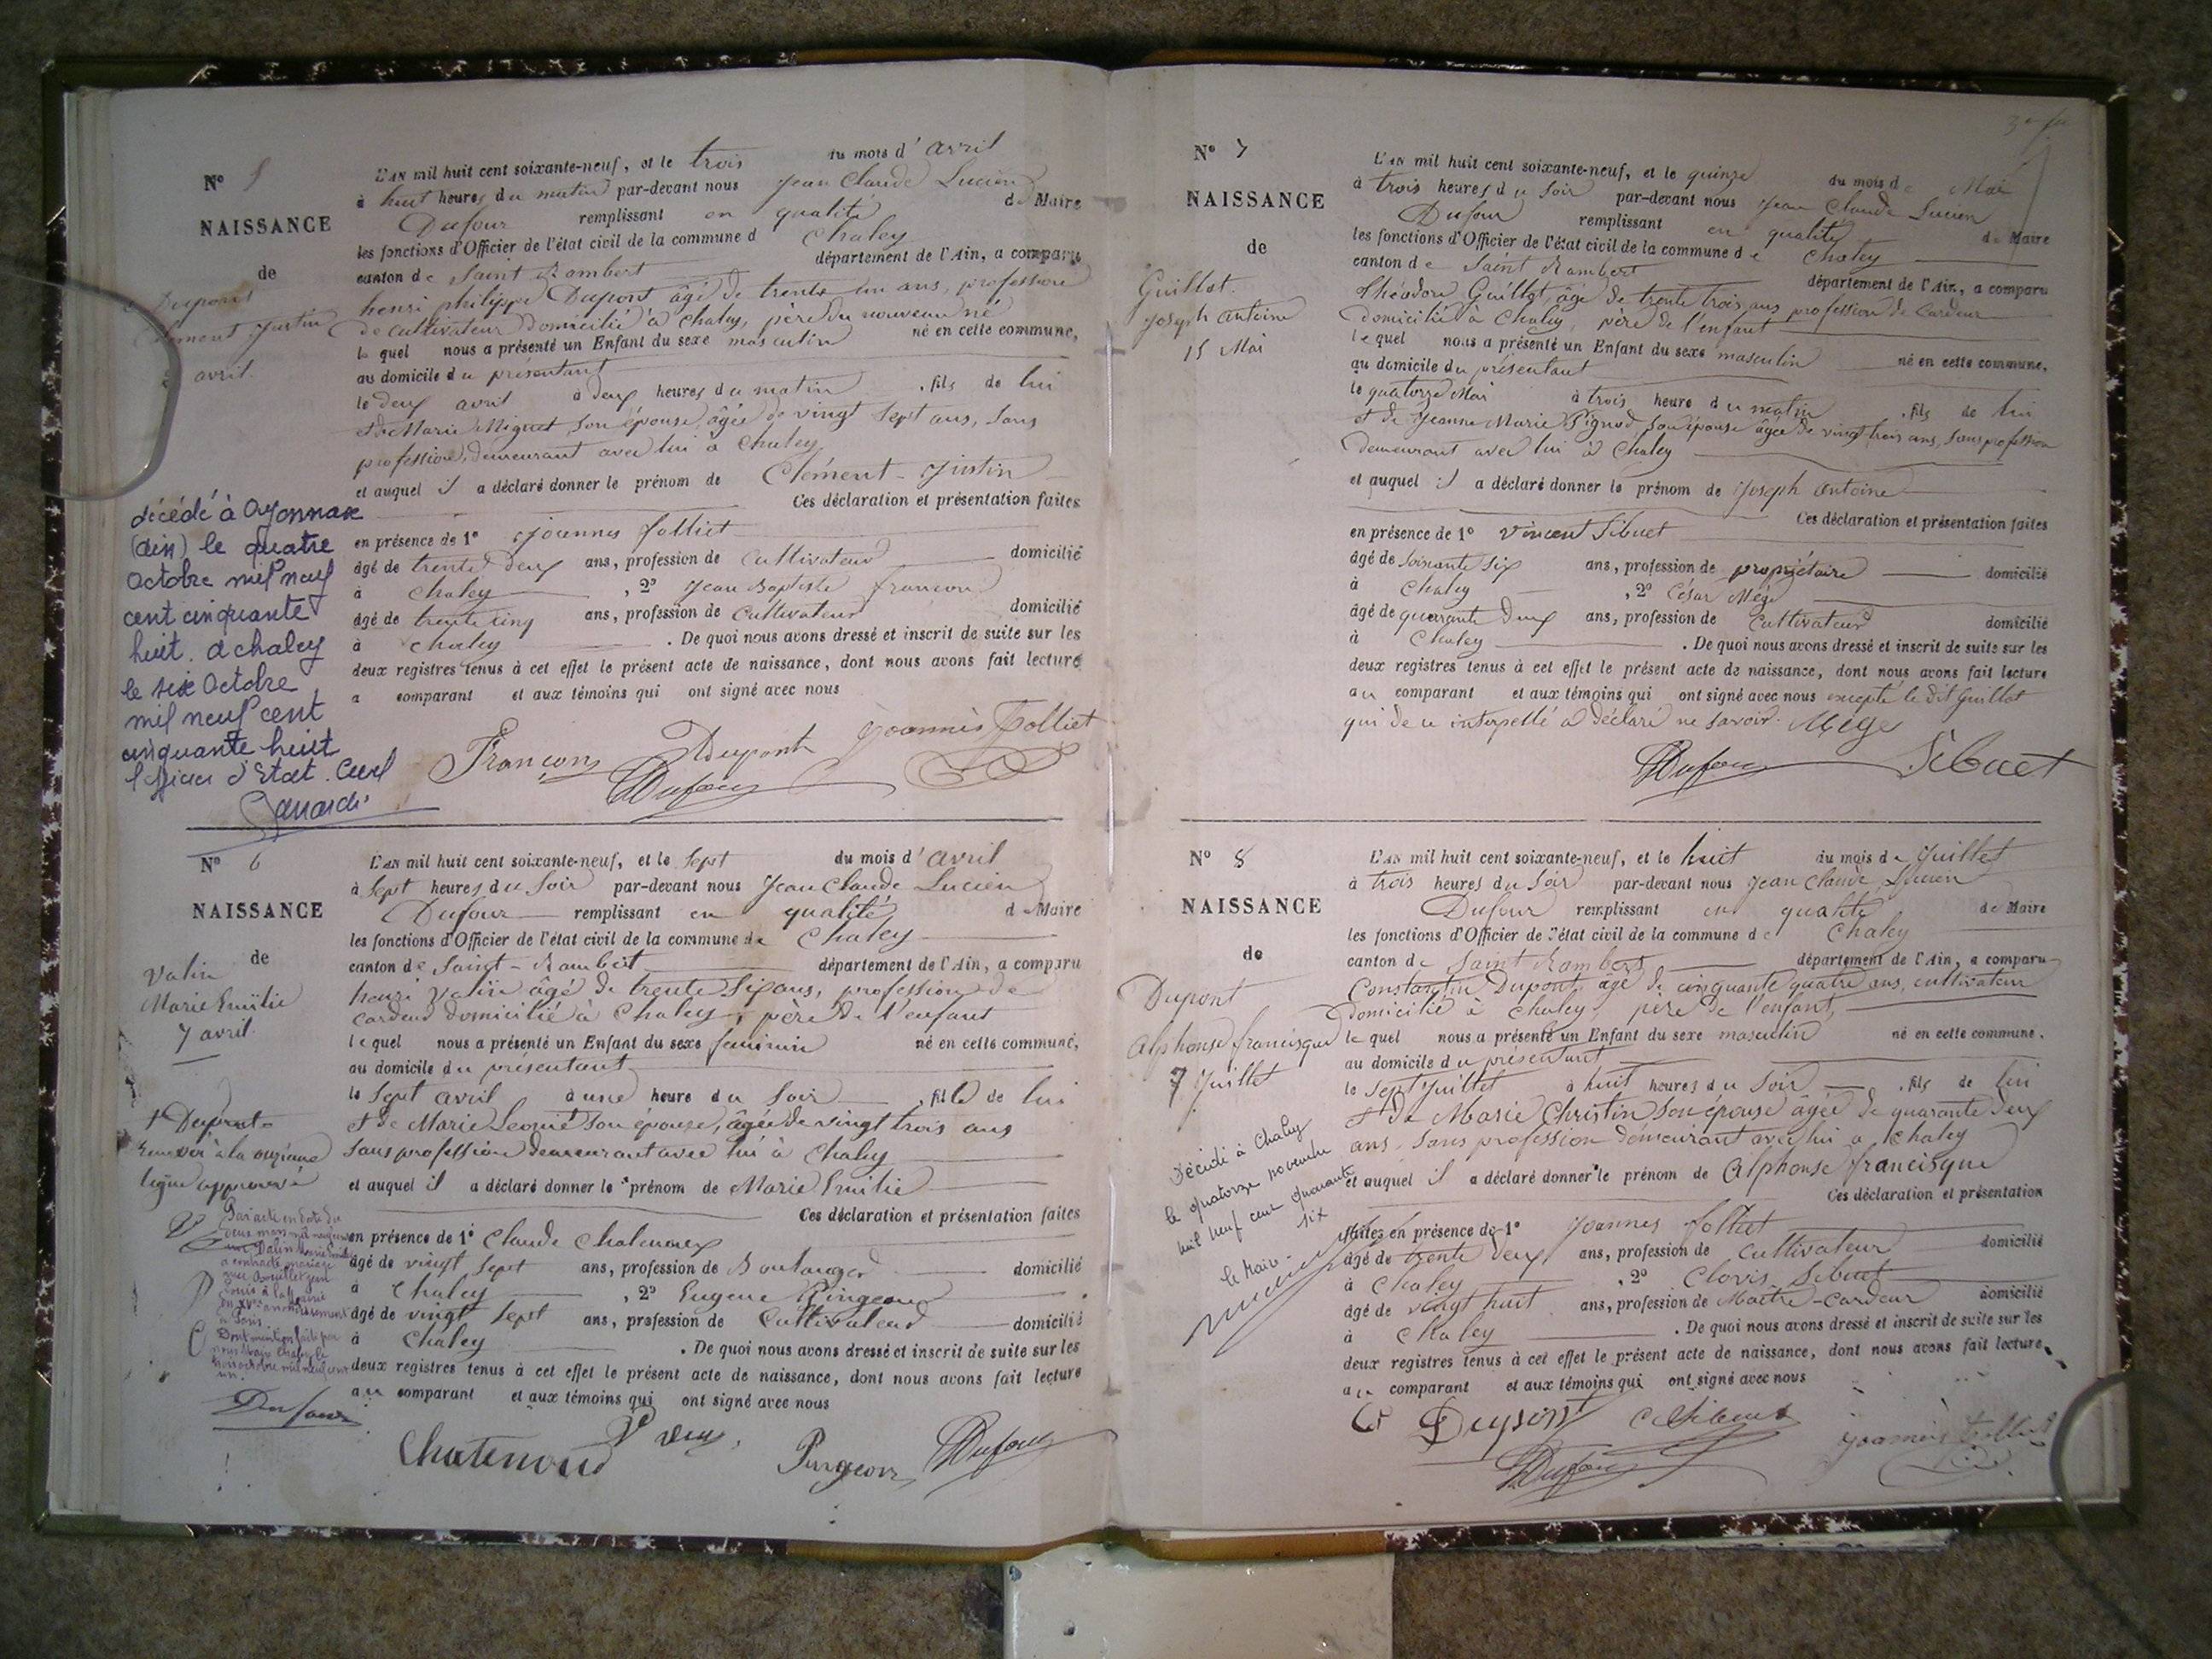 N° 5
NAISSANCE
de
Dupont
Clément Justin
2 avril.
L'AN mil huit cent soixante-neuf, et le trois du mois d'avril
à huit heures du matin par-devant nous Jean Claude Lucien
Dufour remplissant en qualité de Maire
les fonctions d'Officier de l'état civil de la commune d Chaley
canton de Saint Rambert département de l'Ain, a comparu
henri philippe Dupont âgé de trente un ans, profession
de cultivateur domicilié à Chaley, père du nouveau né
lequel nous a présenté un Enfant du sexe masculin né en cette commune,
au domicile du présentant
le deux avril à deux heures du matin, fils de lui
et de Marie Miguet son épouse, âgée de vingt sept ans, sans
profession, demeurant avec lui à Chaley
et auquel il a déclaré donner le prénom de Clément-Justin
Ces déclaration et présentation faites
en présence de 1° Joannes folliet
âgé de trente deux ans, profession de cultivateur domicilié
à Chaley, 2° Jean Baptiste françon
âgé de trente cinq ans, profession de Cultivateur domicilié
à Chaley. De quoi nous avons dressé et inscrit de suite sur les
deux registres tenus à cet effet le présent acte de naissance, dont nous avons fait lecture
a comparant et aux témoins qui ont signé avec nous
Françon Dupont Joannès Folliet
Dufour
décédé à Oyonnax
(ain) le quatre
Octobre mil neuf
cent cinquante
huit. à chaley
le six Octobre
mil neuf cent
cinquante huit
l'officier d'Etat. Civil
N° 6
NAISSANCE
de
Valin
Marie Emilie
7 avril.
L'AN mil huit cent soixante-neuf, et le sept du mois d'avril
à sept heures du soir par-devant nous Jean Claude Lucien
Dufour remplissant en qualité de Maire
les fonctions d'Officier de l'état civil de la commune de Chaley
canton de Saint-Rambert département de l'Ain, a comparu
henri Valin âgé de trente six ans, profession de
cardeur domicilié à Chaley, père de l'enfant
lequel nous a présenté un Enfant du sexe féminin né en cette commune,
au domicile du présentant
le sept avril à une heure du soir, fille de lui
et de Marie Leonie son épouse, âgée de vingt trois ans
sans profession demeurant avec lui à Chaley
et auquel il a déclaré donner le prénom de Marie Emilie
Ces déclaration et présentation faites
en présence de 1° Claude Chatenoux
âgé de vingt sept ans, profession de Boulanger domicilié
à Chaley, 2° Eugene Pingeon
âgé de vingt sept ans, profession de Cultivateur domicilié
à Chaley. De quoi nous avons dressé et inscrit de suite sur les
deux registres tenus à cet effet le présent acte de naissance, dont nous avons fait lecture
au comparant et aux témoins qui ont signé avec nous
Dufour
Chatenoud Pingeon Dufour
renvoi à la onzième
ligne approuvé
a contracté mariage
arrondissement
à Paris.
Dont mention faite par
nous Maire Chaley le
N° 7
NAISSANCE
de
Guillot.
Joseph antoine
15 Mai
L'AN mil huit cent soixante-neuf, et le quinze du mois de Mai
à trois heures du soir par-devant nous Jean Claude Lucien
Dufour remplissant en qualité de Maire
les fonctions d'Officier de l'état civil de la commune de Chaley
canton de Saint Rambert département de l'Ain, a comparu
Théodore Guillot, âgé de trente trois ans profession de Cardeur
domicilié à Chaley, père de l'enfant
lequel nous a présenté un Enfant du sexe masculin né en cette commune,
au domicile du présentant
le quatorze Mai à trois heure du matin, fils de lui
et de Jeanne Marie Pignod son épouse âgée de vingt trois ans, sans profession
demeurant avec lui à Chaley
et auquel il a déclaré donner le prénom de Joseph antoine
Ces déclaration et présentation faites
en présence de 1° Vincent Sibuet
âgé de soixante six ans, profession de propriétaire domicilié
à Chaley, 2° César Mége
âgé de quarante deux ans, profession de Cultivateur domicilié
à Chaley. De quoi nous avons dressé et inscrit de suite sur les
deux registres tenus à cet effet le présent acte de naissance, dont nous avons fait lecture
au comparant et aux témoins qui ont signé avec nous excepté le dit Guillot
qui de ce interpellé a déclaré ne savoir. Mége
Dufour Sibuet
N° 8
NAISSANCE
de
Dupont
Alphonse francisque
7 Juillet
L'AN mil huit cent soixante-neuf, et le huit du mois de Juillet
à trois heures du soir par-devant nous Jean Claude Lucien
Dufour remplissant en qualité de Maire
les fonctions d'Officier de l'état civil de la commune de Chaley
canton de Saint Rambert département de l'Ain, a comparu
Constantin Dupont, âgé de cinquante quatre ans, cultivateur
domicilié à Chaley, père de l'enfant,
lequel nous a présenté un Enfant du sexe masculin né en cette commune,
au domicile du présentant
le sept Juillet à huit heures du soir, fils de lui
et de Marie Christin son épouse âgée de quarante deux
ans, sans profession demeurant avec lui à Chaley
et auquel il a déclaré donner le prénom de Alphonse francisque
Ces déclaration et présentation
faites en présence de 1° Joannes folliet
âgé de trente deux ans, profession de cultivateur domicilié
à Chaley, 2° Clovis Sibuet
âgé de vingt huit ans, profession de Maître-Cardeur domicilié
à Chaley. De quoi nous avons dressé et inscrit de suite sur les
deux registres tenus à cet effet le présent acte de naissance, dont nous avons fait lecture
au comparant et aux témoins qui ont signé avec nous
Ct Dupont C Sibuet Joannès folliet
Dufour
Décédé à Chaley
le quatorze novembre
mil neuf cent quarante
six
le Maire.